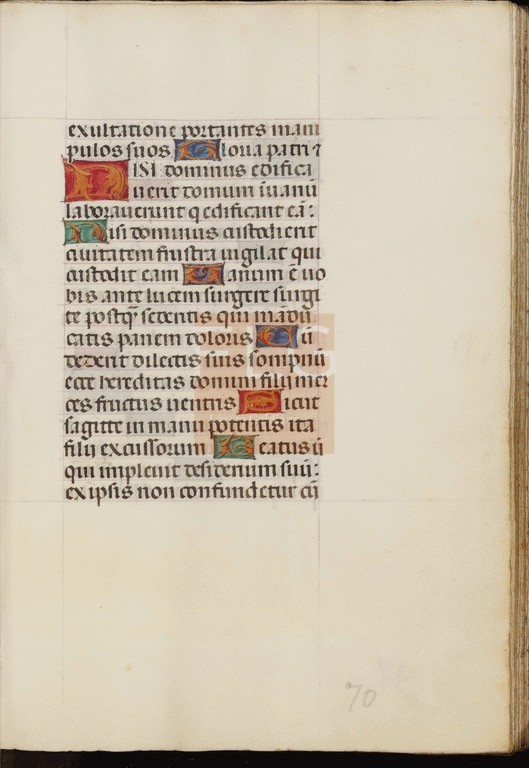 exultatione portantes mani
pulos suos Gloria patri ⁊
NISI dominus edifica
uerit domum ī uanū
laborauerunt q̄ edificant eā:
Nisi dominus custodierit
ciuitatem frustra uigilat qui
custodit eam Uanum ē uo
bis ante lucem surgere surgi
te postq̄ᷓ sederitis qui mādu
catis panem doloris Cū
dederit dilectis suis sompnū
ecce hereditas domini filij mer
ces fructus uentris Sicut
sagitte in manu potentis ita
filij excussorum Beatus ū
qui impleuit desiderium suū:
ex ipsis non confundetur cū
70